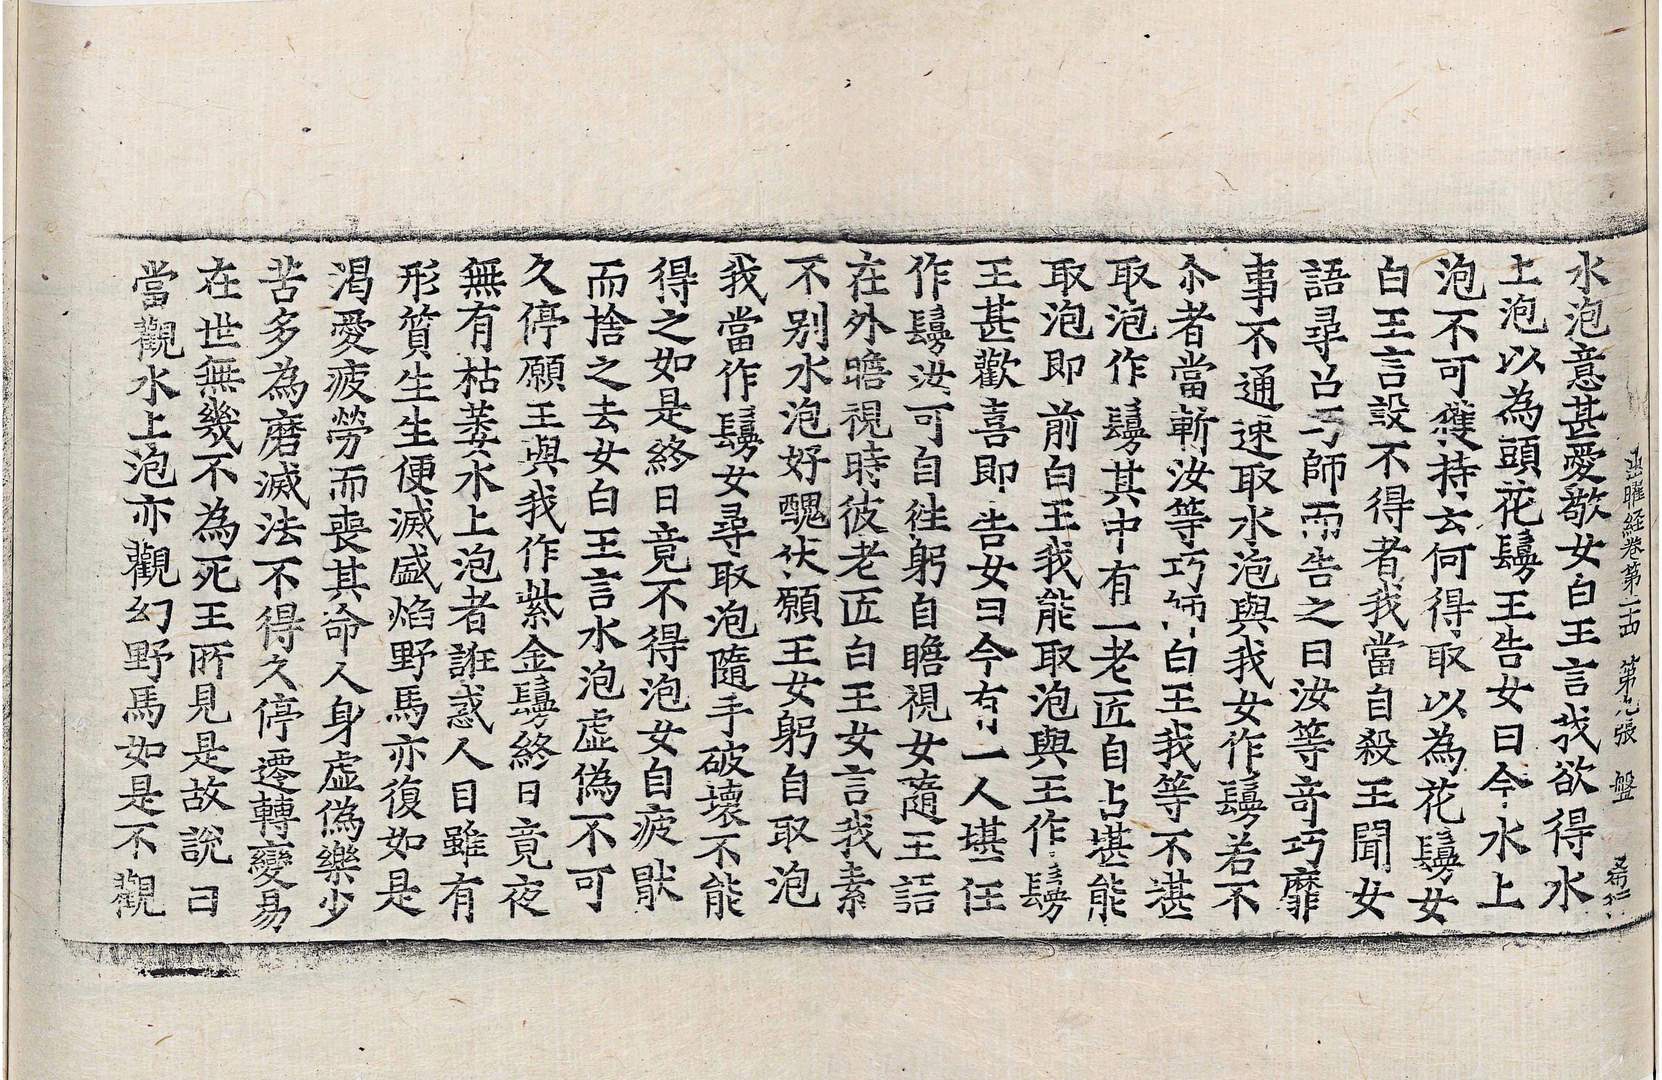 出曜経卷第二十四 第九張 盤
水泡意甚愛敬女白王言我欲得水
上泡以為頭花鬘王告女曰今水上
泡不可獲持云何得取以為花鬘女
白王言設不得者我當自殺王聞女
語尋召巧師而告之曰汝等奇巧靡
事不通速取水泡與我女作鬘若不
尒者當斬汝等巧師白王我等不堪
取泡作鬘其中有一老匠自占堪能
取泡即前白王我能取泡與王作鬘
王甚歡喜即告女曰今有一人堪任
作鬘汝可自往躬自瞻視女隨王語
在外瞻視時彼老匠白王女言我素
不別水泡好醜伏願王女躬自取泡
我當作鬘女尋取泡隨手破壞不能
得之如是終日竟不得泡女自疲猒
而捨之去女白王言水泡虛偽不可
久停願王與我作紫金鬘終日竟夜
無有枯萎水上泡者誑惑人目雖有
形質生生便滅盛焰野馬亦復如是
渴愛疲勞而喪其命人身虛偽樂少
苦多為磨滅法不得久停遷轉變易
在世無幾不為死王所見是故說曰
當觀水上泡亦觀幻野馬如是不觀